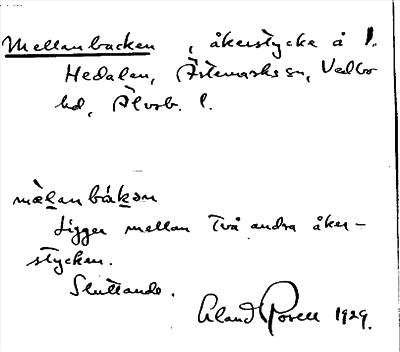 Mellanbacken, åkerstycke å l.
Hedalen, Ärtemarks sn, Vedbo
hd, Älvsb. l.
mèlanbákən
Ligger mellan två andra åker-
stycken.
Sluttande.
Erland Rosell 1929.